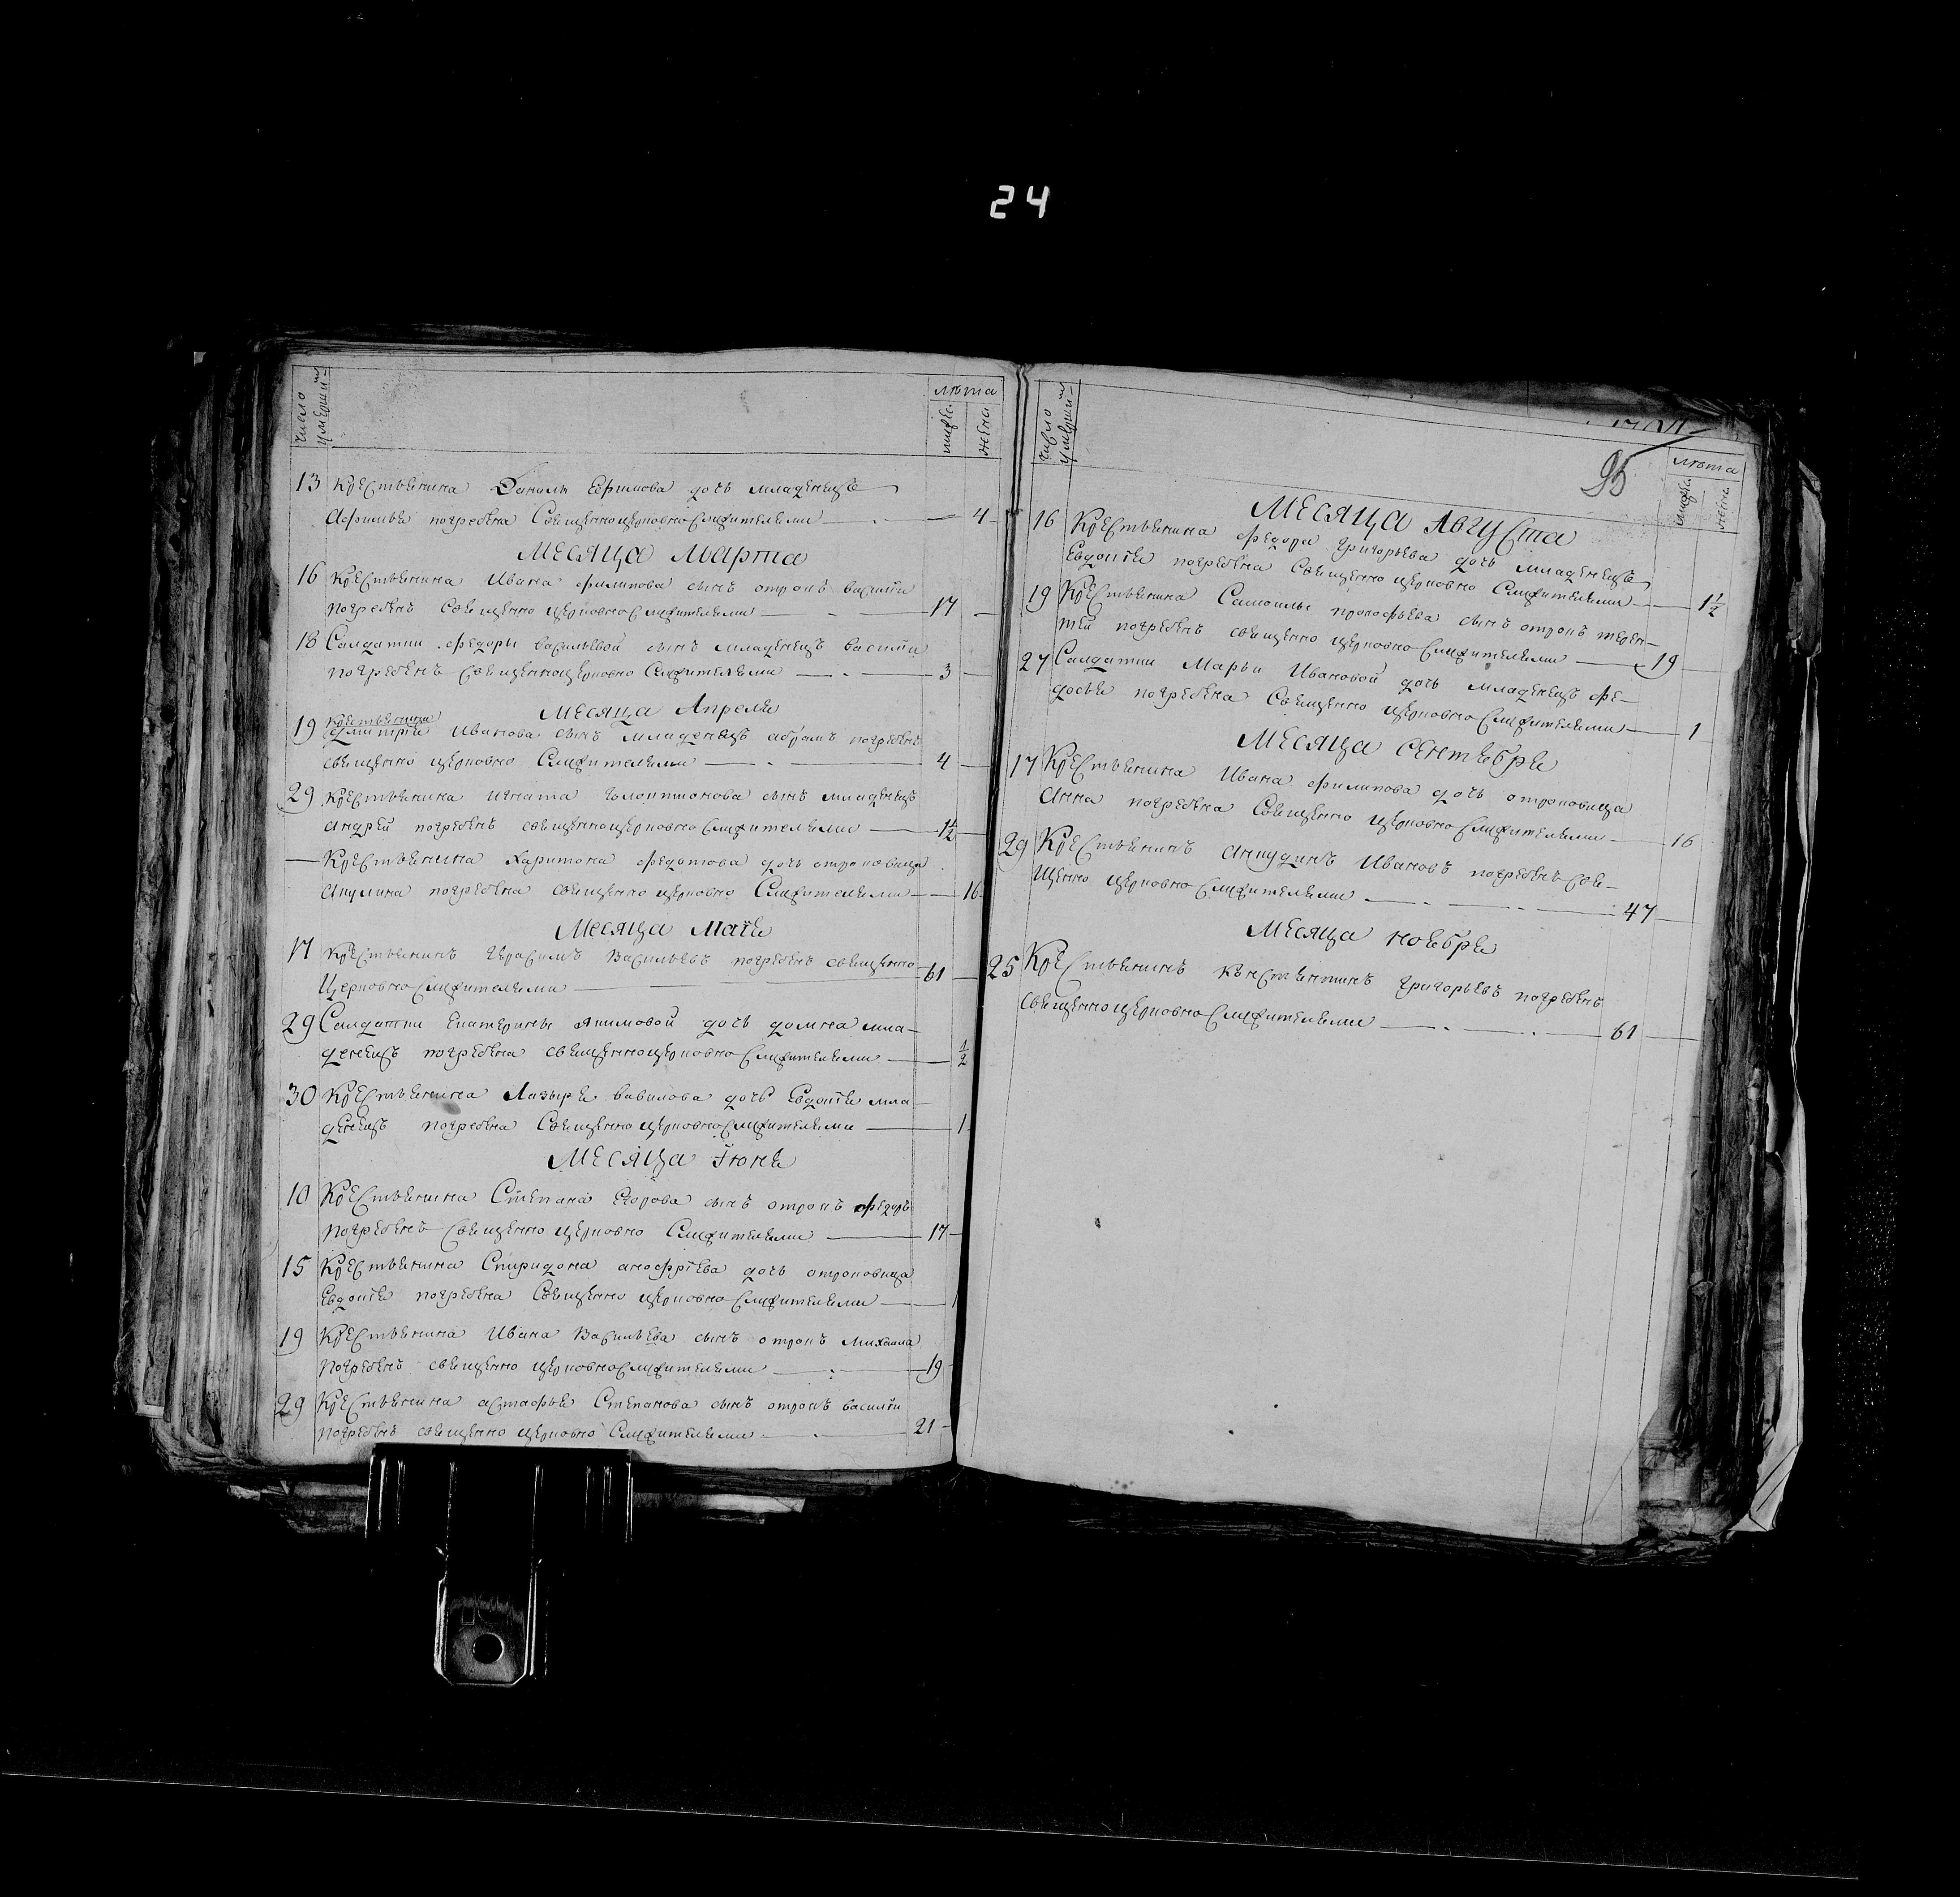 24
число умерши^х
лѣта
мужес.
женс.
13 Крестьянина Данилы Ефимова дочь младенецъ
Афимья погребена Священноцерковнослужителями 4
Месяца Марта
16 Крестьянина Ивана Филипова сынъ отрокъ василїй
погребенъ Священно церковнослужителями 17
18 Салдатки Федоры васильевой сынъ младенецъ василїй
погребенъ Священноцерковно Служителями 3
Месяца Апреля
Крестьянина
19 Дмитрїя Иванова сынъ младенецъ абрамъ погребенъ
священно церковно Служителями 4
29 Крестьянина Игната сынъ младенецъ
андрей погребенъ священноцерковнослужителями 1 1/2
— Крестьянина Харитона Федотова дочь отроковица
Акулина погребена священно церковно Служителями 16
Месяца Маїя
17 Крестьянинъ Герасимъ Васильевъ погребенъ священно
Церковнослужителями 61
29 Салдатки Екатерины Якимовой дочь домна мла-
денецъ погребена священноцерковнослужителями 1/2
30 Крестьянина Лазыря вавилова дочь Евдокїя мла
денецъ погребена Священно церковнослужителями 1
Месяца Їюня
10 Крестьянина Степана Егорова сынъ отрокъ Федоръ
погребенъ Священно церковно Служителями 17
15 Крестьянина Спиридона анофрїева дочь отроковица
Евдокїя погребена Священно церковнослужителями 1
19 Крестьянина Ивана Васильева сынъ отрокъ Михаила
погребенъ священно церковнослужителями 19
29 Крестьянина астафья Степанова сынъ отрокъ василїй
погребенъ священно церковно Служителями 21
число умерши^х
95
лѣта
мужес.
женс.
Месяца Августа
16 Крестьянина Федора Григорьева дочь младенецъ
Евдокїя погребена Священно церковно Служителями 1 1/2
19 Крестьянина Самойлы прокофьева сынъ отрокъ терен-
тей погребенъ священно церковнослужителями 19
27 Салдатки Марьи Ивановой дочь младенецъ Фе-
досья погребена Священно церковнослужителями 1
Месяца Сентября
17 Крестьянина Ивана Филипова дочь отроковица
Анна погребена Священно церковнослужителями 16
29 Крестьянинъ анкудинъ Ивановъ погребенъ Свя-
щенно церковнослужителями 47
Месяца ноября
25 Крестьянинъ Григорьевъ погребенъ
священноцерковнослужителями 61